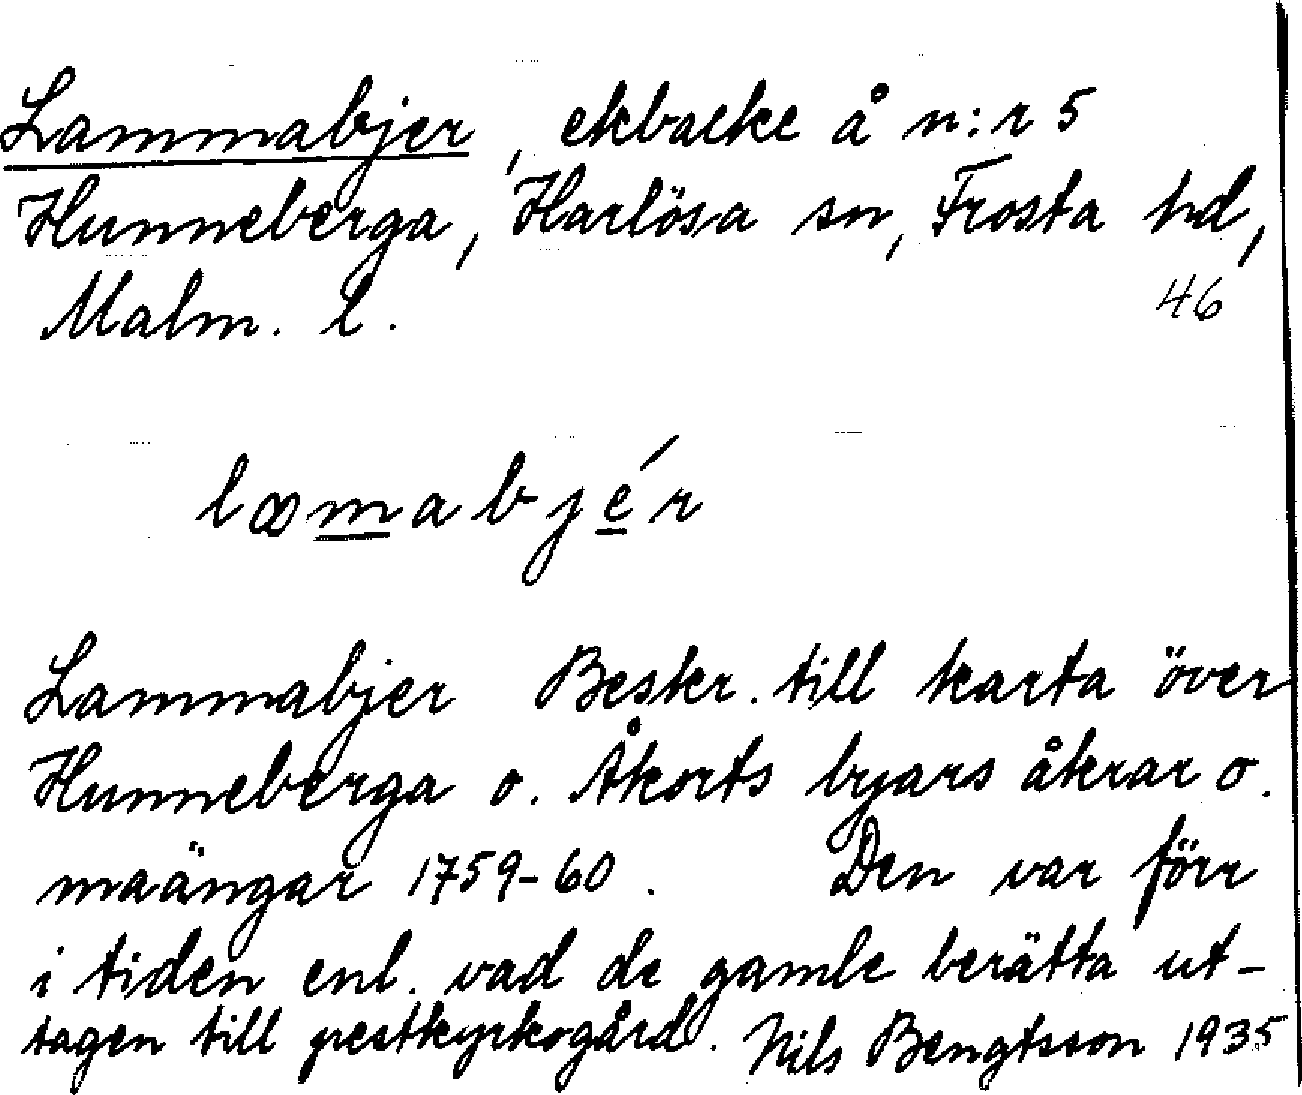 Lammabjer, ekbacke å n:r 5
Hunneberga, Harlösa sn, Frosta hd,
Malm. l.
46
lamabjér
Lammabjer Beskr. till karta över
Hunneberga o. Åkorts byars åkrar o.
maängar 1759-60. Den var förr
i tiden enl. vad de gamle berätta ut-
tagen till pestkyrkogård. Nils Bengtsson 1935